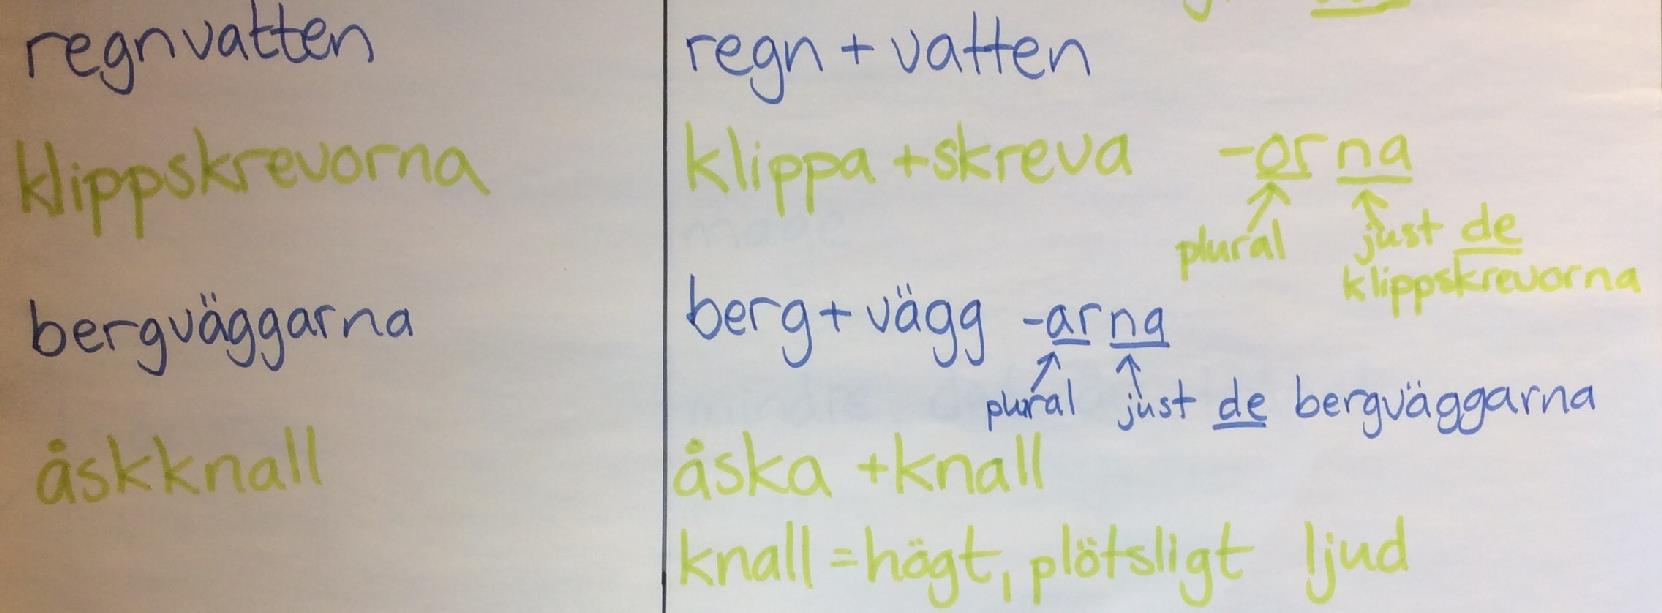 regnvatten
regn + vatten
klippskrevorna
klippa + skreva -orna
plural
just de
klippskrevorna
bergväggarna
berg + vägg -arna
plural just de bergväggarna
åskknall
åska + knall
knall = högt, plötsligt ljud